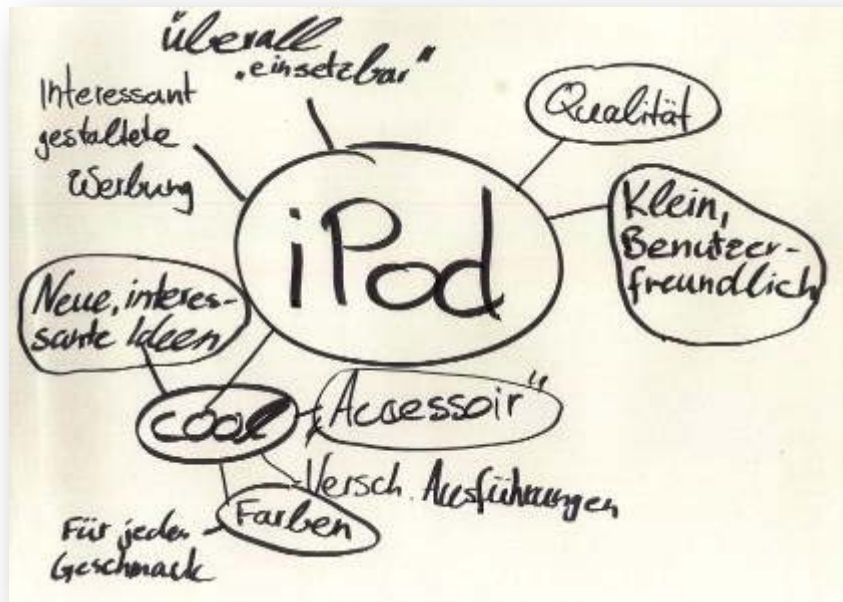 überall
„einsetzbar"
Interessant
gestaltete
Werbung
Qualität
iPod
Klein,
Benutzer-
freundlich
Neue, interes-
sante Ideen
cool
„Accessoir"
Versch. Ausführungen
Farben
Für jeden
Geschmack